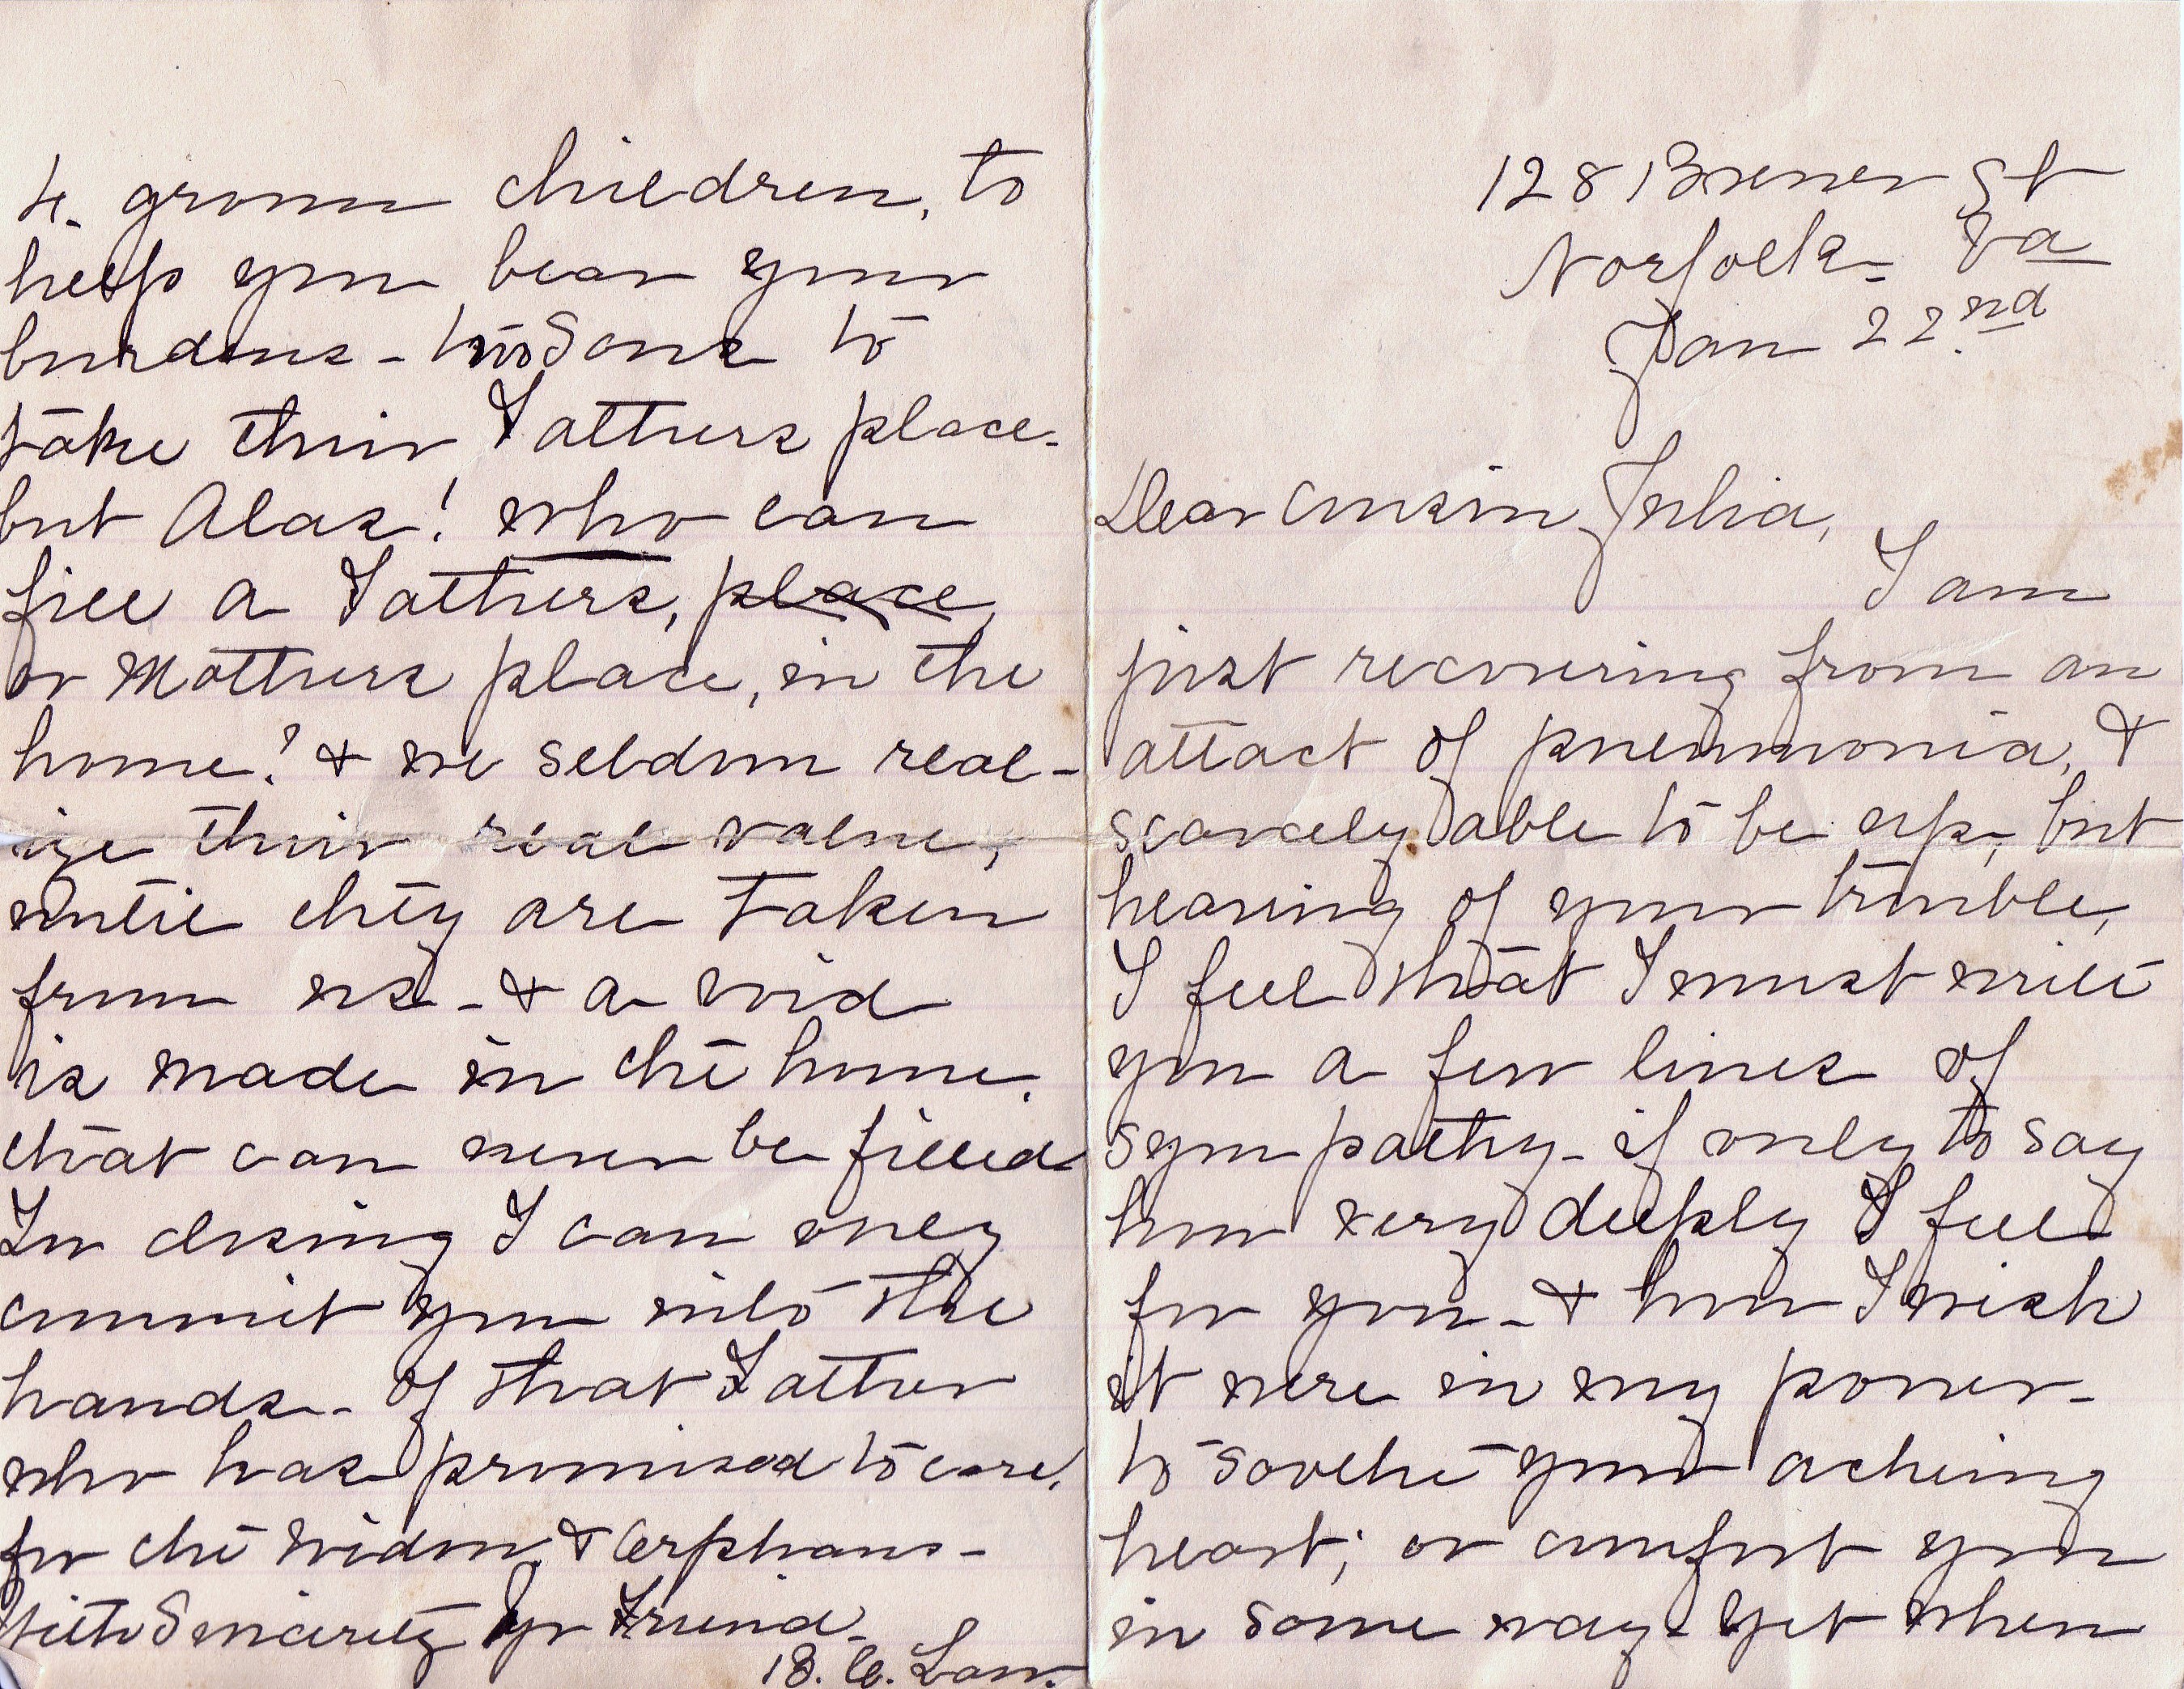 128 Brewer St
Norfolk - Va
Jan 22nd
Dear Cousin Julia,
I am
just recovering from an
attact of pneumonia, &
scarcely able to be up, but
hearing of your trouble,
I feel that I must write
you a few lines of
sympathy - if only to say
how very deeply I feel
for you - & how I wish
it were in my power -
to soothe your aching
heart; or comfort you
in some way - yet when
4. grown children, to
help you bear your
burdens - two Sons to
take their Fathers place -
but Alas! who can
fill a Fathers, place,
or Mothers place, in the
home? & we seldom real-
ize their real value,
until they are taken
from us - & a void
is made in the home.
that can never be filled
In closing I can only
commit you into the
hands - of that Father
who has promised to care,
for the widow & Orphans -
With Sincerity yr Friend -
B. C. Law.